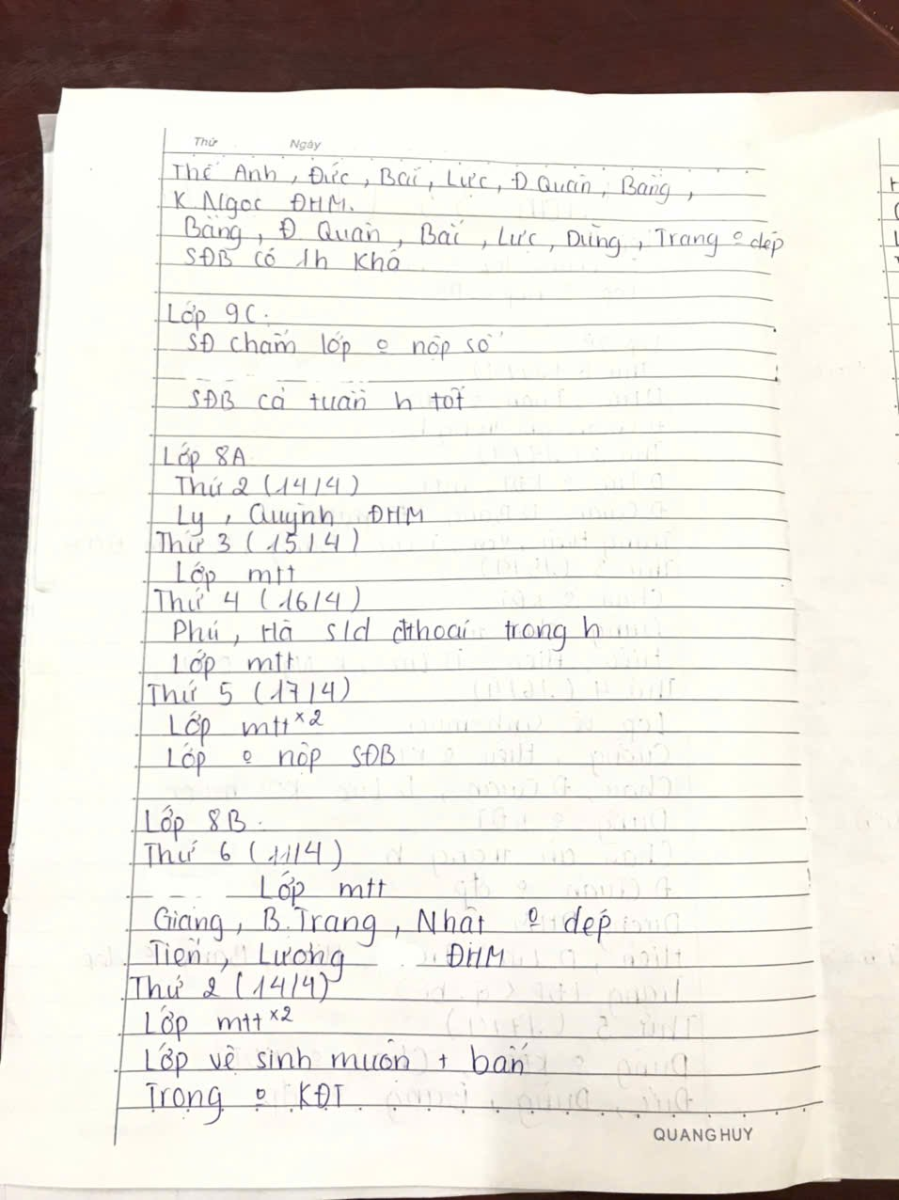 Thứ Ngày
Thế Anh, Đức, Bái, Lực, Đ Quân, Bằng,
K Ngọc ĐHM.
Bằng, Đ Quân, Bái, Lực, Dũng, Trang º dép
SĐB có 1h Khá
Lớp 9C:
SĐ chấm lớp º nộp sổ
SĐB cả tuần h tốt
Lớp 8A
Thứ 2 (14/4)
Ly, Quỳnh ĐHM
Thứ 3 (15/4)
Lớp mtt
Thứ 4 (16/4)
Phú, Hà s/d đthoại trong h
Lớp mtt
Thứ 5 (17/4)
Lớp mtt x2
Lớp º nộp SĐB
Lớp 8B.
Thứ 6 (11/4)
Lớp mtt
Giang, B.Trang, Nhật º dép
Tiến, Lương ĐHM
Thứ 2 (14/4)
Lớp mtt x2
Lớp vệ sinh muộn + bẩn
Trọng º KĐT
QUANG HUY